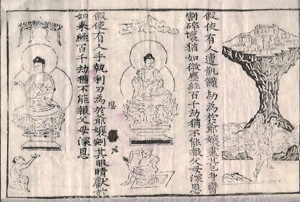 假使有人遭飢饉劫為於爺孃盡其己身臠
割碎壞猶如微塵經百千劫猶不能報父母深恩
假使有人手執利刀為於爺孃剜其眼睛獻於
如來經百千劫猶不能報父母深恩